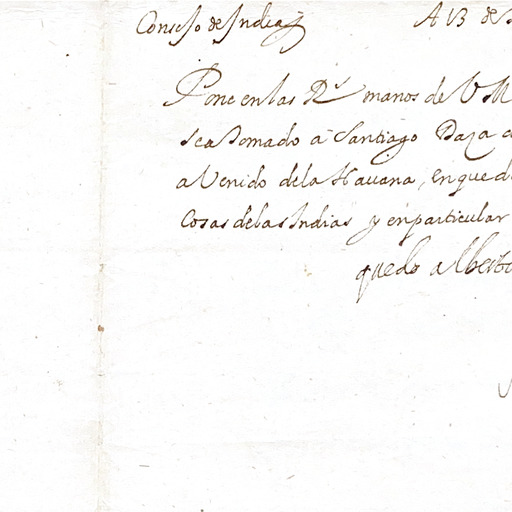 Consejo de Indias A 13 de
Pone en las Rs manos de V M
se a tomado a Santiago Daza
a Venido de la Havana, en que d
Cosas de las Indias y en particular
quedo alberto